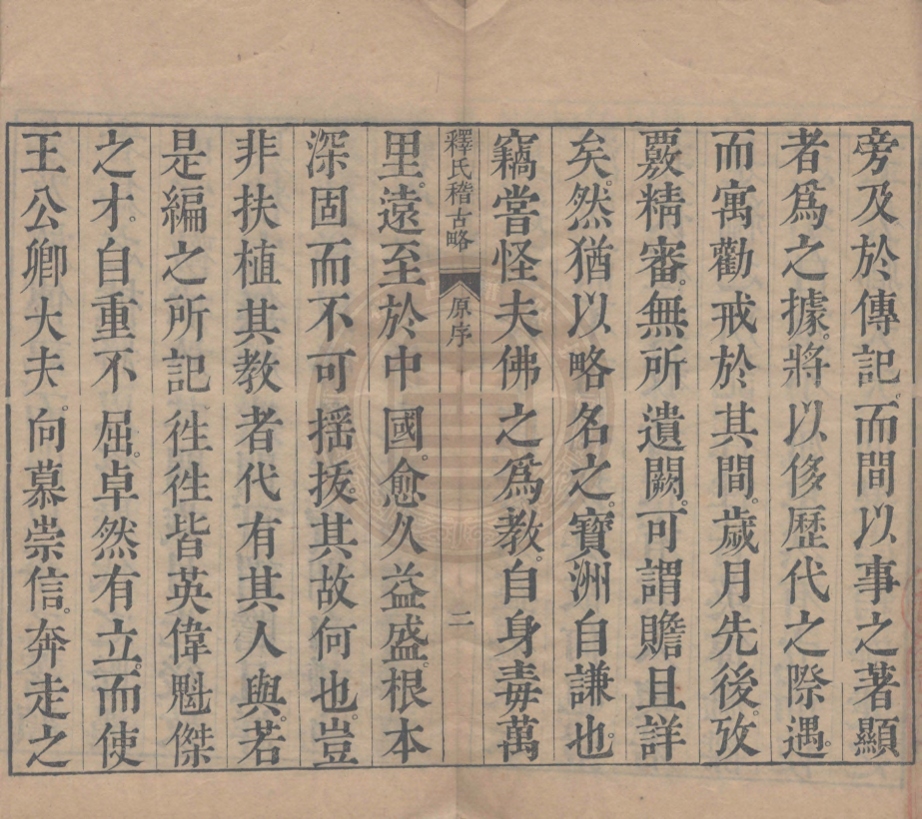 旁及於傳記。而間以事之著顯
者爲之據。將以侈歷代之際遇。
而寓勸戒於其間。歲月先後。攷
覈精審。無所遺闕。可謂贍且詳
矣。然猶以略名之。寶洲自謙也。
竊嘗怪夫佛之爲教。自身毒萬
釋氏稽古略 原序 二
里。遠至於中國。愈久益盛。根本
深固而不可揺拔。其故何也。豈
非扶植其教者代有其人與。若
是編之所記徃徃皆英偉魁傑
之才。自重不屈。卓然有立。而使
王公卿大夫。向慕崇信。奔走之